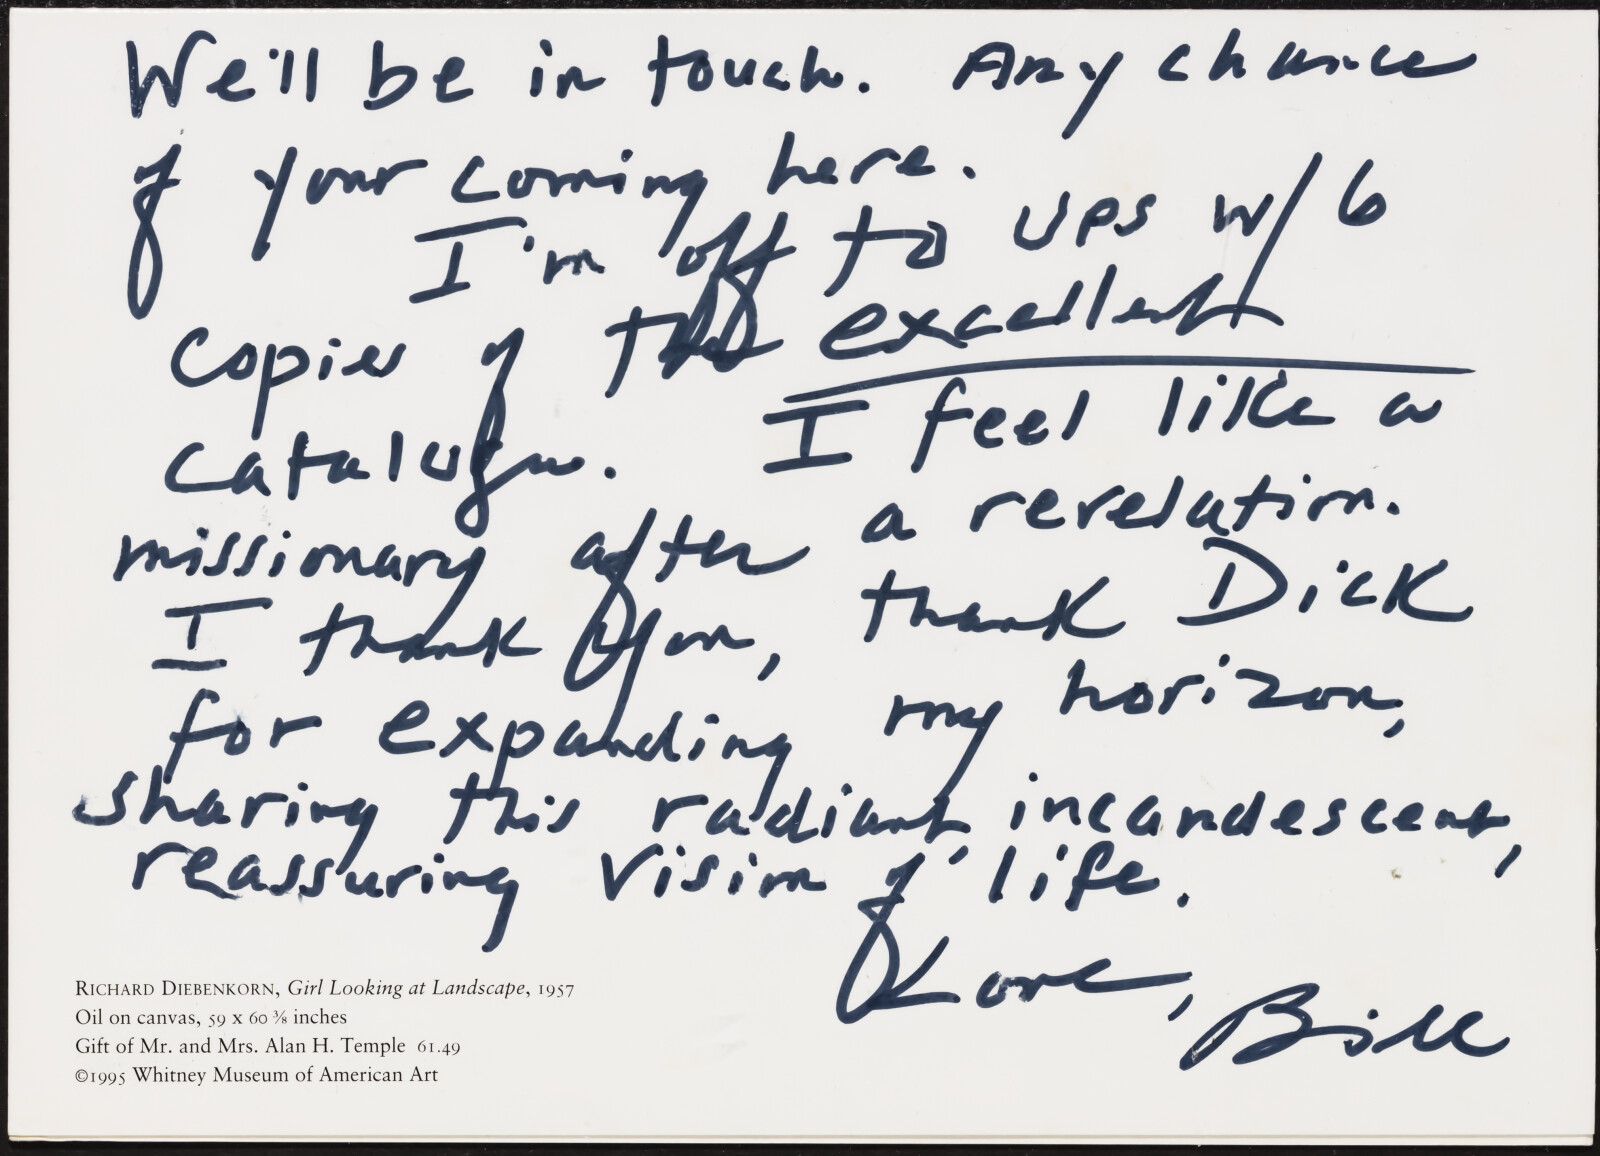 We'll be in touch. Any chance
of your coming here.
I'm off to UPS w/ 6
copies of the excellent
catalogue. I feel like a
missionary after a revelation.
I thank you, thank Dick
for expanding my horizon,
sharing this radiant, incandescent,
reassuring vision of life.
Love,
Bill
RICHARD DIEBENKORN, Girl Looking at Landscape, 1957
Oil on canvas, 59 x 60 3/8 inches
Gift of Mr. and Mrs. Alan H. Temple 61.49
©1995 Whitney Museum of American Art